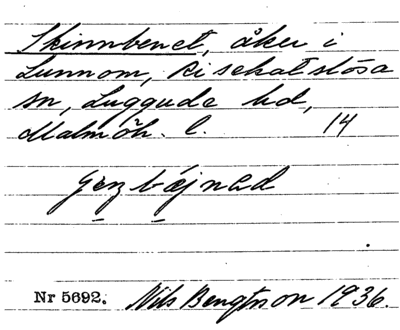 Skinnbenet, åker i
Lunnom, Risekatslösa
sn, Luggude hd,
Malmöh. l. 14
Nr 5692. Nils Bengtsson 1936.